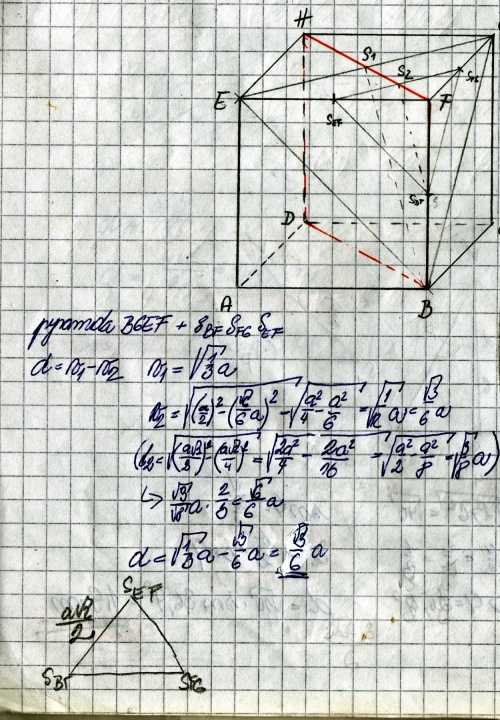 H
S1
S2
E
F
SFG
SEF
SBF
D
A
B
pyramida BGEF + SBF SFG SEF
d = r1 - r2   r1 = √(1/3) a
r2 = √((a/2)² - (√6/6 a)²) = √(a²/4 - a²/6) = √(1/12) a = √3/6 a
(t2 = √((a√2/2)² - (a√2/4)²) = √(2a²/4 - 2a²/16) = √(a²/2 - a²/8) = √(3/8) a)
↳ √3/√8 a · 2/3 = √6/6 a
d = √(1/3) a - √3/6 a = √3/6 a
SEF
a√2/2
SBF
SFG